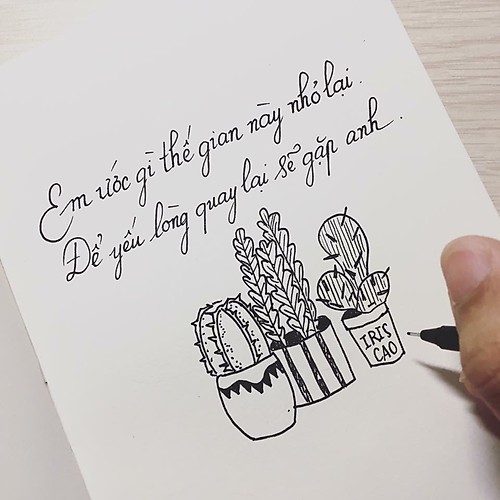 Em ước gì thế gian này nhỏ lại.
Để yếu lòng quay lại sẽ gặp anh.
IRIS
CAO